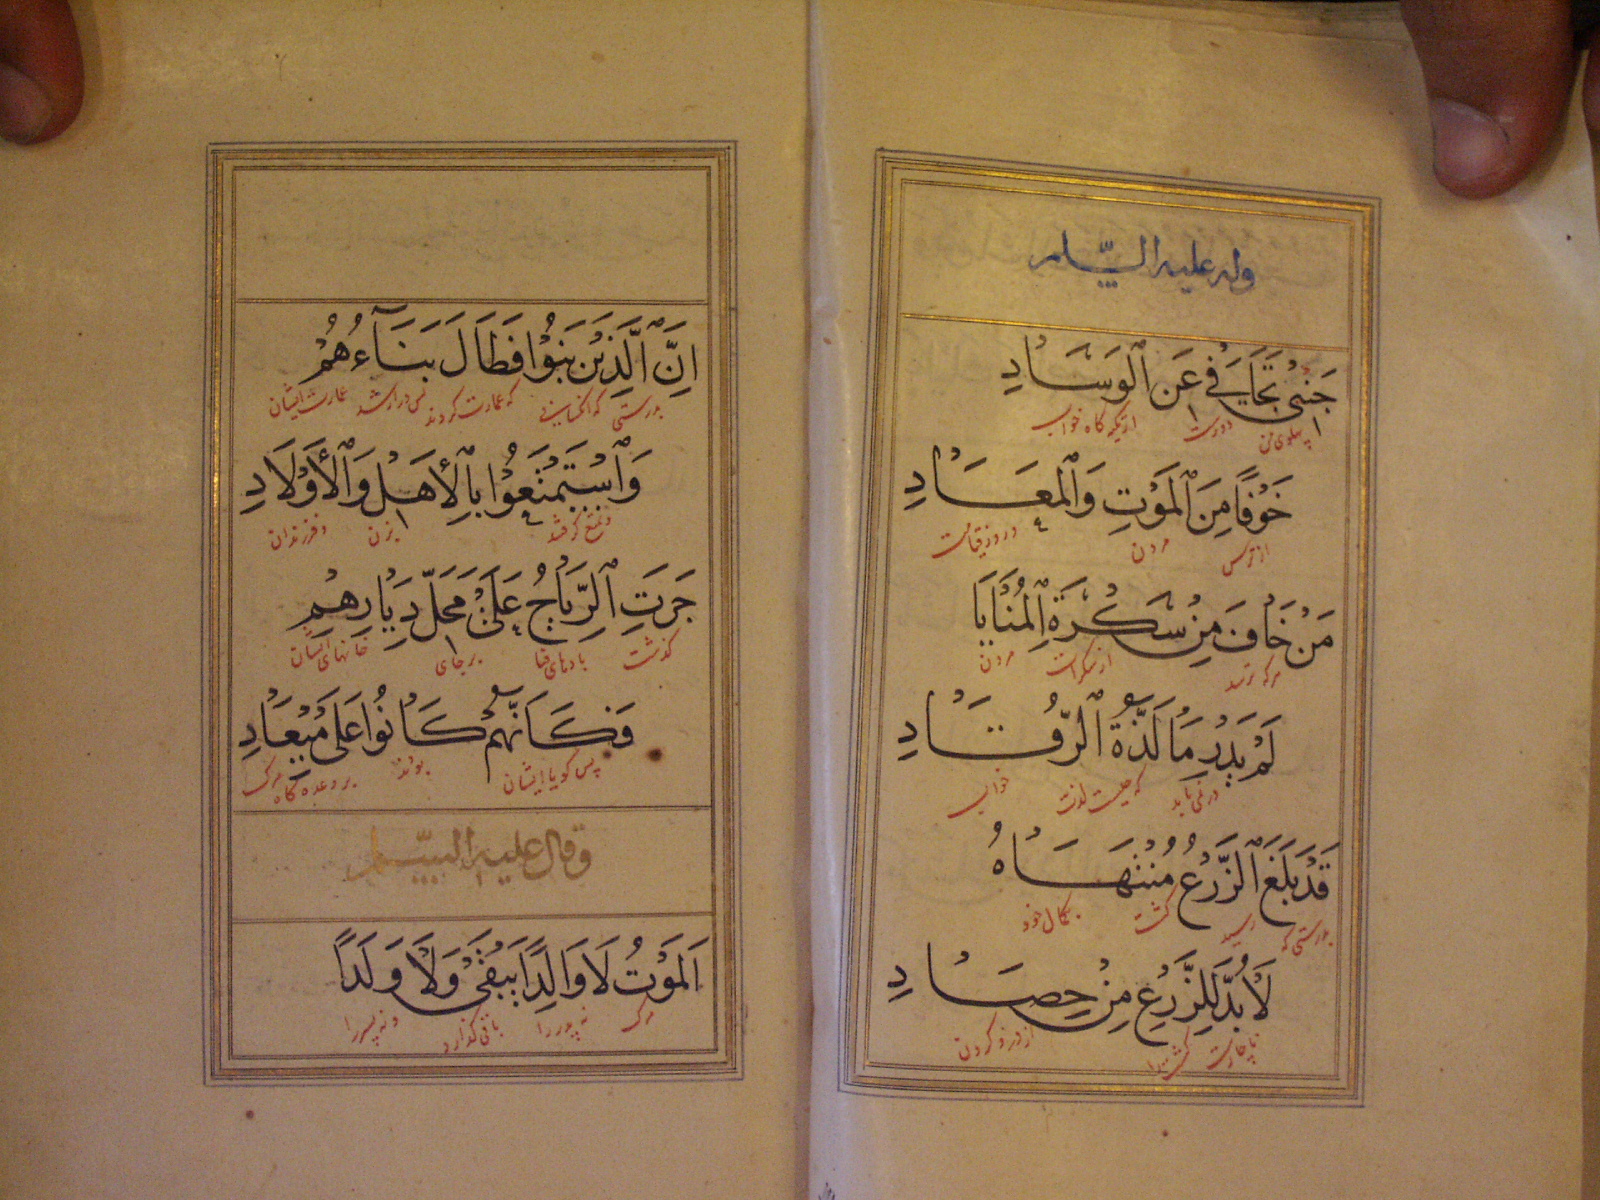 وله عليه السّلم
جَنْبِيْ تَجَافَيْ عَنِ ٱلْوَسَادِ
پهلوی من دورست از تکیه گاه خواب
خَوْفًا مِنَ ٱلْمَوْتِ وَٱلْمَعَادِ
از ترس مردن و روز قیامت
مَنْ خَافَ مِنْ سَكْرَةِ ٱلْمَنَايَا
هرکه ترسد از سکرات مردن
لَمْ يَدْرِ مَا لَذَّةُ ٱلرُّقَادِ
در نمی یابد که چیست لذت خواب
قَدْ بَلَغَ ٱلزَّرْعُ مُنْتَهَاهُ
بدرستی که رسید کشت بکمال خود
لَا بُدَّ لِلزَّرْعِ مِنْ حِصَادِ
ناچارست کشت را از درو کردن
اِنَّ ٱلَّذِيْنَ بَنَوْا فَطَالَ بِنَآءُهُمْ
بدرستی که آنکسانی که عمارت کردند پس دراز شد عمارت ایشان
وَٱسْتَمْتَعُوْا بِٱلْأَهْلِ وَٱلْأَوْلَادِ
و تمتع گرفتند بزن و فرزندان
جَرَتِ ٱلرِّيَاحُ عَلَىْ مَحَلِّ دِيَارِهِمْ
گذشت بادهای فنا بر جای خانهای ایشان
فَكَاَنَّهُمْ كَانُوْا عَلَى مِيْعَادِ
پس گویا ایشان بودند بر وعده گاه مرگ
وقال عليه السّلم
اَلْمَوْتُ لَا وَالِدًا يُبْقِيْ وَلَا وَلَدًا
مرگ نه پدر را باقی گذارد و نه پسر را